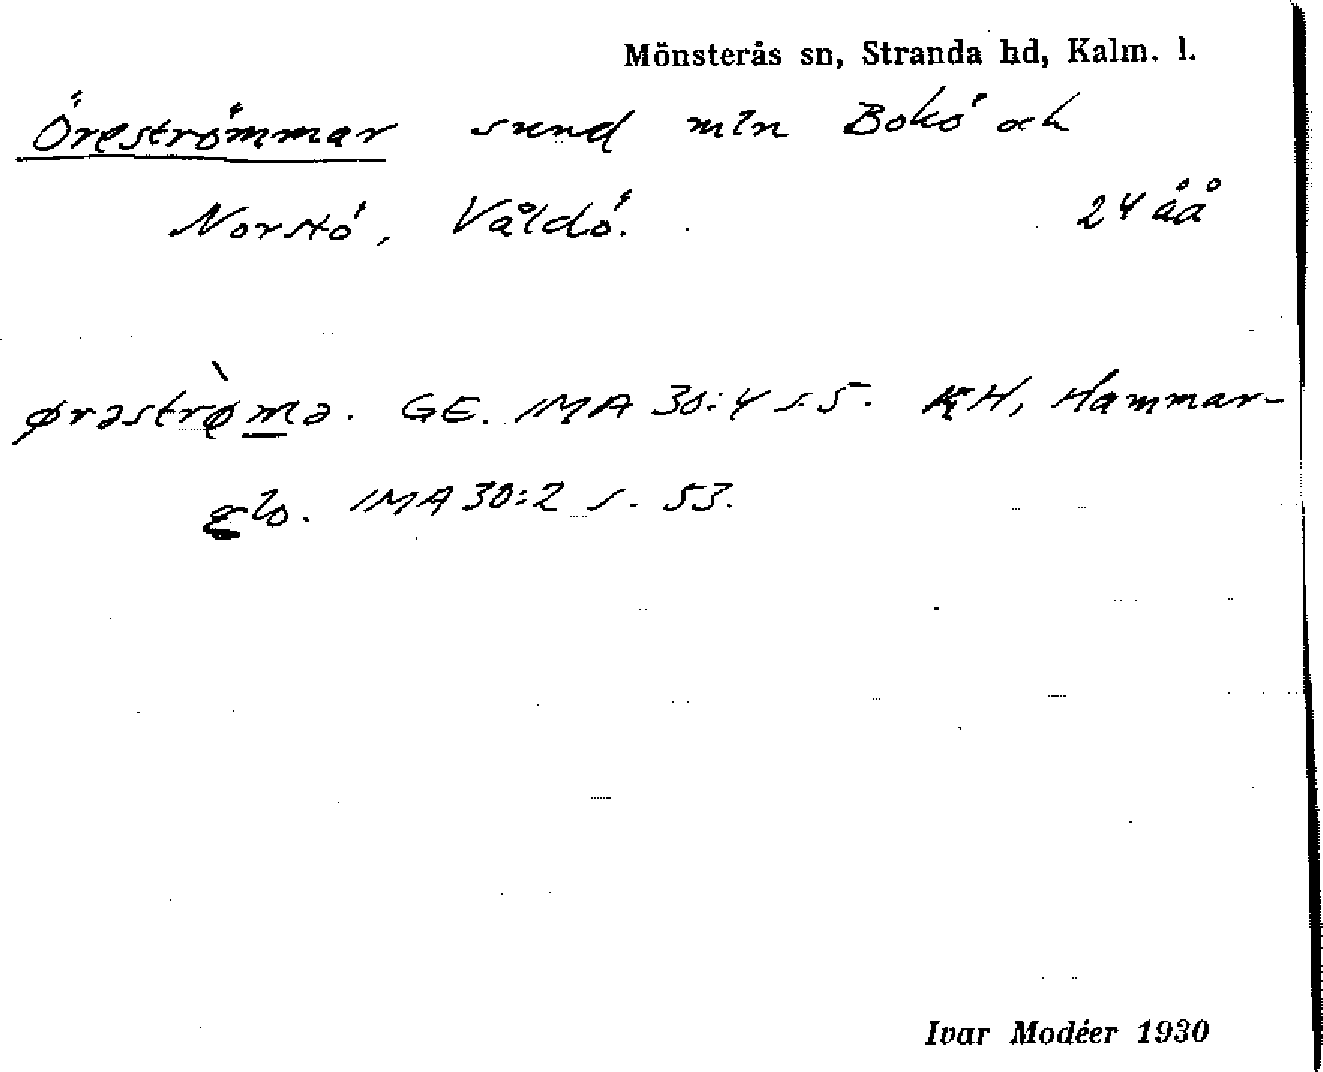 Mönsterås sn, Stranda hd, Kalm. l.
Öreströmmar sund mln Bokö och
Norstö, Våldö. 24 åå
ørastrø̀ma. GE. IMA 30:4 s. 5. KH, Hammar-
glo. IMA 30:2 s. 53.
Ivar Modéer 1930